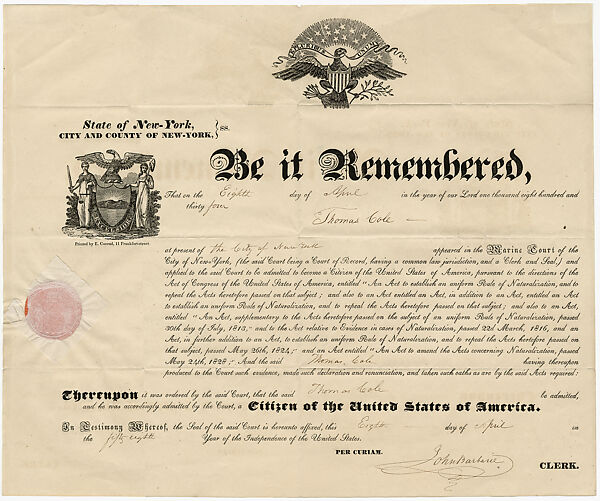 State of New-York,
CITY AND COUNTY OF NEW-YORK, } ss.
Printed by E. Conrad, 11 Frankfort-street.
Be it Remembered,
That on the Eighth day of April in the year of our Lord one thousand eight hundred and
thirty four
Thomas Cole
at present of the City of New York appeared in the Marine Court of the
City of New-York, (the said Court being a Court of Record, having a common law jurisdiction, and a Clerk and Seal,) and
applied to the said Court to be admitted to become a Citizen of the United States of America, pursuant to the directions of the
Act of Congress of the United States of America, entitled "An Act to establish an uniform Rule of Naturalization, and to
repeal the Acts heretofore passed on that subject; and also to an Act entitled an Act, in addition to an Act, entitled an Act
to establish an uniform Rule of Naturalization, and to repeal the Acts heretofore passed on that subject: and also to an Act,
entitled "An Act, supplementary to the Acts heretofore passed on the subject of an uniform Rule of Naturalization, passed
30th day of July, 1813," and to the Act relative to Evidence in cases of Naturalization, passed 22d March, 1816, and an
Act, in further addition to an Act, to establish an uniform Rule of Naturalization, and to repeal the Acts heretofore passed on
that subject, passed May 26th, 1824," and an Act entitled "An Act to amend the Acts concerning Naturalization, passed
May 24th, 1828;" And the said Thomas Cole having thereupon
produced to the Court such evidence, made such declaration and renunciation, and taken such oaths as are by the said Acts required:
Thereupon it was ordered by the said Court, that the said Thomas Cole be admitted,
and he was accordingly admitted by the Court, a Citizen of the United States of America.
In Testimony Whereof, the Seal of the said Court is hereunto affixed, this Eighth day of April in
the fifty eighth Year of the Independence of the United States.
PER CURIAM.
John Barberie CLERK.